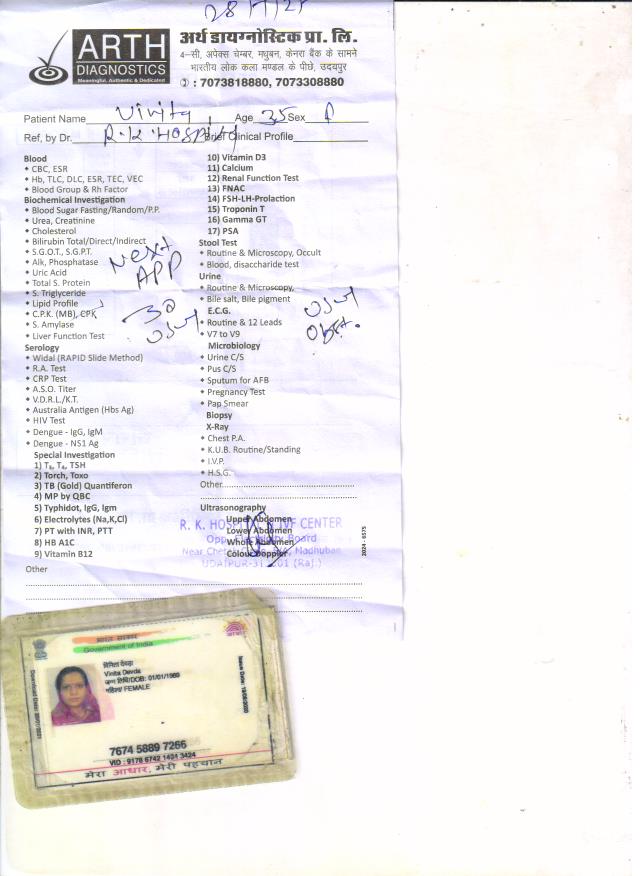 ARTH
DIAGNOSTICS
Meaningful, Authentic & Dedicated
अर्थ डायग्नोस्टिक प्रा. लि.
4-सी, अपेक्स चेम्बर, मधुबन, केनरा बैंक के सामने
भारतीय लोक कला मण्डल के पीछे, उदयपुर
: 7073818880, 7073308880
Patient Name Vinita Age 35 Sex
Ref, by Dr. R.K HOSPITAL Brief Clinical Profile
Blood
CBC, ESR
Hb, TLC, DLC, ESR, TEC, VEC
Blood Group & Rh Factor
Biochemical Investigation
Blood Sugar Fasting/Random/P.P.
Urea, Creatinine
Cholesterol
Bilirubin Total/Direct/Indirect
S.G.O.T., S.G.P.T.
Alk, Phosphatase
Uric Acid
Total S. Protein
S. Triglyceride
Lipid Profile
C.P.K. (MB), CPK
S. Amylase
Liver Function Test
Serology
Widal (RAPID Slide Method)
R.A. Test
CRP Test
A.S.O. Titer
V.D.R.L./K.T.
Australia Antigen (Hbs Ag)
HIV Test
Dengue - IgG, IgM
Dengue - NS1 Ag
Special Investigation
1) T₃, T₄, TSH
2) Torch, Toxo
3) TB (Gold) Quantiferon
4) MP by QBC
5) Typhidot, IgG, Igm
6) Electrolytes (Na,K,Cl)
7) PT with INR, PTT
8) HB A1C
9) Vitamin B12
Other
10) Vitamin D3
11) Calcium
12) Renal Function Test
13) FNAC
14) FSH-LH-Prolaction
15) Troponin T
16) Gamma GT
17) PSA
Stool Test
Routine & Microscopy, Occult
Blood, disaccharide test
Urine
Routine & Microscopy,
Bile salt, Bile pigment
E.C.G.
Routine & 12 Leads
V7 to V9
Microbiology
Urine C/S
Pus C/S
Sputum for AFB
Pregnancy Test
Pap Smear
Biopsy
X-Ray
Chest P.A.
K.U.B. Routine/Standing
I.V.P.
H.S.G.
Other
Ultrasonography
Upper Abdomen
Lower Abdomen
Whole Abdomen
Colour Doppler
Next
APP
R. K. HOSPITAL & IVF CENTER
Board
Madhuban
UDAIPUR-313001 (Raj.)
2024-0575
भारत सरकार
Government of India
विनिता देवड़ा
Vinita Devda
जन्म तिथि/DOB: 01/01/1989
महिला/ FEMALE
7674 5889 7266
VID : 9178 6742 1434 3424
मेरा आधार, मेरी पहचान